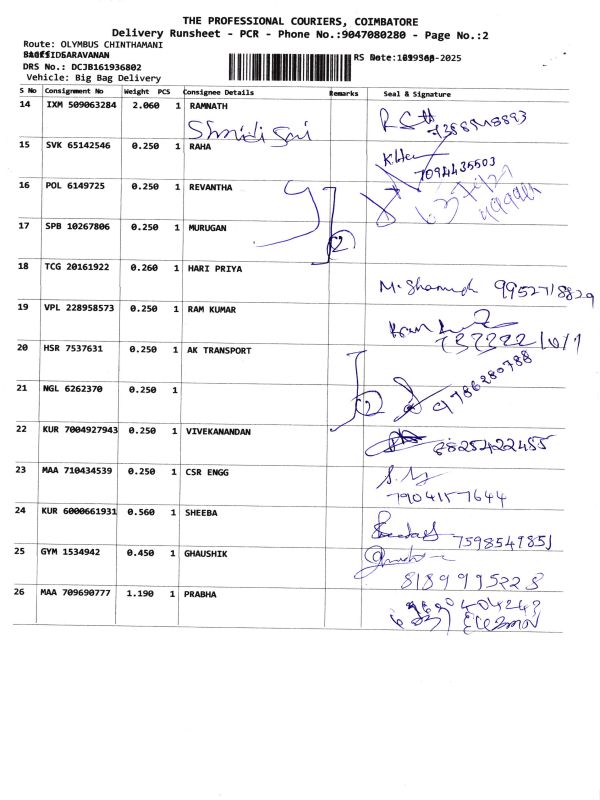 THE PROFESSIONAL COURIERS, COIMBATORE
Delivery Runsheet - PCR - Phone No.:9047080280 - Page No.:2
Route: OLYMBUS CHINTHAMANI
SARAVANAN RS Date: -2025
DRS No.: DCJB161936802
Vehicle: Big Bag Delivery
S No Consignment No Weight PCS Consignee Details Remarks Seal & Signature
14 IXM 509063284 2.060 1 RAMNATH
15 SVK 65142546 0.250 1 RAHA
7094435503
16 POL 6149725 0.250 1 REVANTHA
17 SPB 10267806 0.250 1 MURUGAN
2
18 TCG 20161922 0.260 1 HARI PRIYA
9952718829
19 VPL 228958573 0.250 1 RAM KUMAR
20 HSR 7537631 0.250 1 AK TRANSPORT
21 NGL 6262370 0.250 1
2 9786280788
22 KUR 7004927943 0.250 1 VIVEKANANDAN
8825422455
23 MAA 710434539 0.250 1 CSR ENGG
7904157644
24 KUR 6000661931 0.560 1 SHEEBA
7598549851
25 GYM 1534942 0.450 1 GHAUSHIK
8189995223
26 MAA 709690777 1.190 1 PRABHA